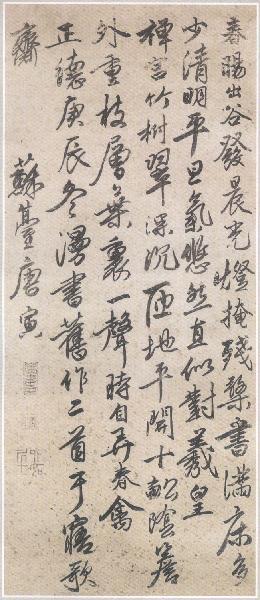 春暘出谷發晨光燈掩殘檠書滿床多
少清明平旦氣悠然直似對羲皇
禪竹樹翠深沉匝地平開十畝陰簷
外重枝層葉裏一聲時自弄春禽
正德庚辰冬漫書舊作二首于寤歌
齋 蘇臺唐寅